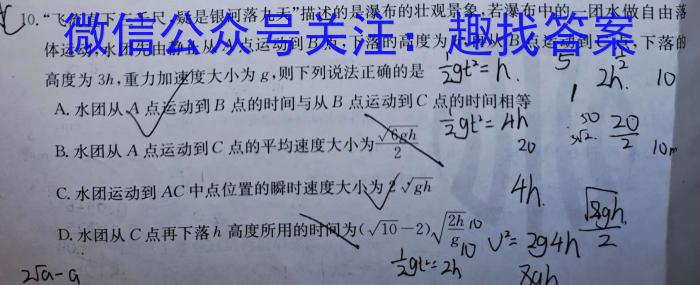 10."飞流直下三千尺,疑是银河落九天"描述的是瀑布的壮观景象,若瀑布中的一团水做自由落
微信公众号关注:趣找答案
体运动,水团先由静止从A点运动到B点,下落的高度为 点运动到 点,下落的
高度为3h,重力加速度大小为g,则下列说法正确的是
A.水团从A点运动到B点的时间与从B点运动到C点的时间相等
B.水团从A点运动到C点的平均速度大小为√(6gh)/2
C.水团运动到AC中点位置的瞬时速度大小为2√gh
D.水团从C点再下落h高度所用的时间为(√10-2)√(2h/g)
½gt²=h.
5
1
2h.
10
½gt²=4h
20
50
20/2
10m
4h.
√8gh/2
10
10
V²=2g4h
½gt²=2h
8gh
2√a-a